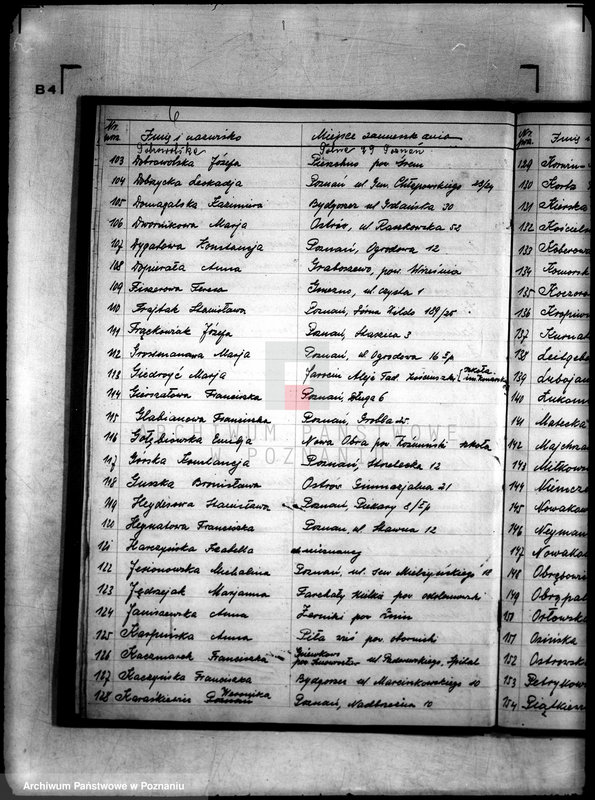 B4
Nr. porz. Imię i nazwisko Miejsce zamieszkania
Polna 29 Poznań
103 Dobrowolska Józefa pow. Śrem
104 Dobrzycka Leokadja Poznań ul. Gen. Chłapowskiego
105 Domagalska Kazimiera Bydgoszcz ul. Gdańska 30
106 Dwornikowa Marja Ostrów, ul. Raszkowska 52
107 Dygatowa Konstancja Poznań, Ogrodowa 12
108 Dopierała Anna Graboszewo, pow. Września
109 Fiszerowa Teresa Gniezno, ul. Czysta 1
110 Frajtak Stanisława Poznań, Górna Wilda 189/25
111 Frąckowiak Józefa Poznań, Składowa 3
112 Grossmanowa Marja Poznań, ul. Ogrodowa 16
113 Giedroyć Marja Jarocin Aleje Tad. Kościuszki szkoła
114 Franciszka Poznań, Długa 6
115 Glabianowa Franciszka Poznań, Grobla 25
116 Gołębiewska Emilja Nowa Obra pow. Koźmiński szkoła
117 Górska Konstancja Poznań, Strzelecka 12
118 Bronisława Ostrów Gimnazjalna 21
119 Heyderowa Stanisława Poznań, Piekary 8/
120 Franciszka Poznań, ul. Sławna 12
121 Karczyńska Izabella nieznany
122 Jezionowska Michalina Poznań, ul. Sew. Mielżyńskiego
123 Jędrzejak Marjanna pow. odolanowski
124 Janiszewska Anna Żerniki pow. Żnin
125 Karpińska Anna Piła wieś pow. obornicki
126 Kaczmarek Franciszka Gniewkowo pow. Inowrocław ul. Piłsudskiego, Szpital
127 Kaczyńska Franciszka Bydgoszcz ul. Marcinkowskiego 10
128 Weronika Poznań, Nadbrzeżna 10
Nr. porz. Imię i
129
130 Korta
131 Kierska
132 Kościeln
133 Koberow
134 Komorsk
135 Koczoro
136
137 Kurna
138 Leitgebe
139 Lebojan
140 Łukom
141 Matecka
142 Majchrza
143 Milkow
144 Niemcze
145 Nowakow
146 Neyman
147 Nowakow
148
149 Obrępal
150 Orłowska
151 Osińska
152 Ostrowsk
153 Petrykow
154 Piątkie
ARCHIWUM PAŃSTWOWE
W POZNANIU
Archiwum Państwowe w Poznaniu